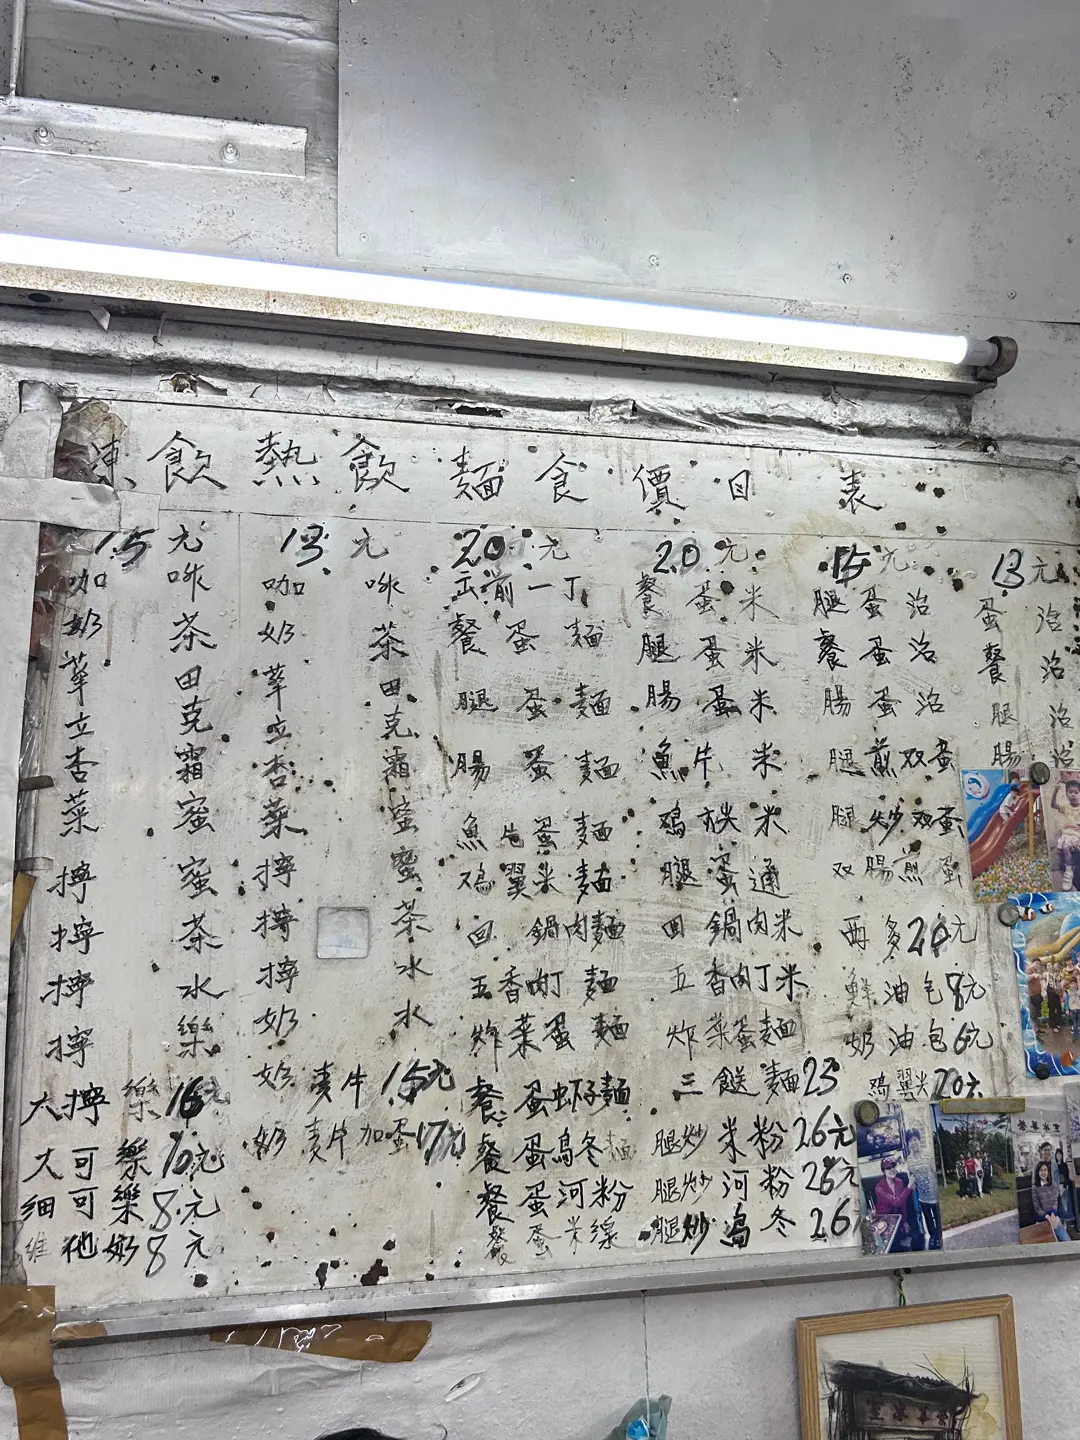 凍飲熱飲麵食價目表
15元
咖啡
奶茶
華田
立克
杏霜
菜蜜
擰蜜
擰茶
擰水
擰樂
大擰樂16元
大可樂10元
細可樂8.元
維他奶8元
13元
咖啡
奶茶
華田
立克
杏霜
菜蜜
擰蜜
擰茶
擰水
奶水
奶麦片15元
奶麦片加蛋17元
20元
出前一丁
餐蛋麵
腿蛋麵
腸蛋麵
魚片蛋麵
鸡翼米麵
回鍋肉麵
五香肉丁麵
炸菜蛋麵
餐蛋虾子麵
餐蛋烏冬麵
餐蛋河粉
餐蛋米線
20元
餐蛋米
腿蛋米
腸蛋米
魚片米
鸡米
腿蛋通
回鍋肉米
五香肉丁米
炸菜蛋麵
三餸麵23
腿炒米粉26元
腿炒河粉26元
腿炒烏冬26
15元
腿蛋治
餐蛋治
腸蛋治
腿煎双蛋
腿炒双蛋
双腸煎蛋
西多20元
鮮油包8元
奶油包6元
鸡翼20元
13元
蛋治
餐治
腿治
腸治